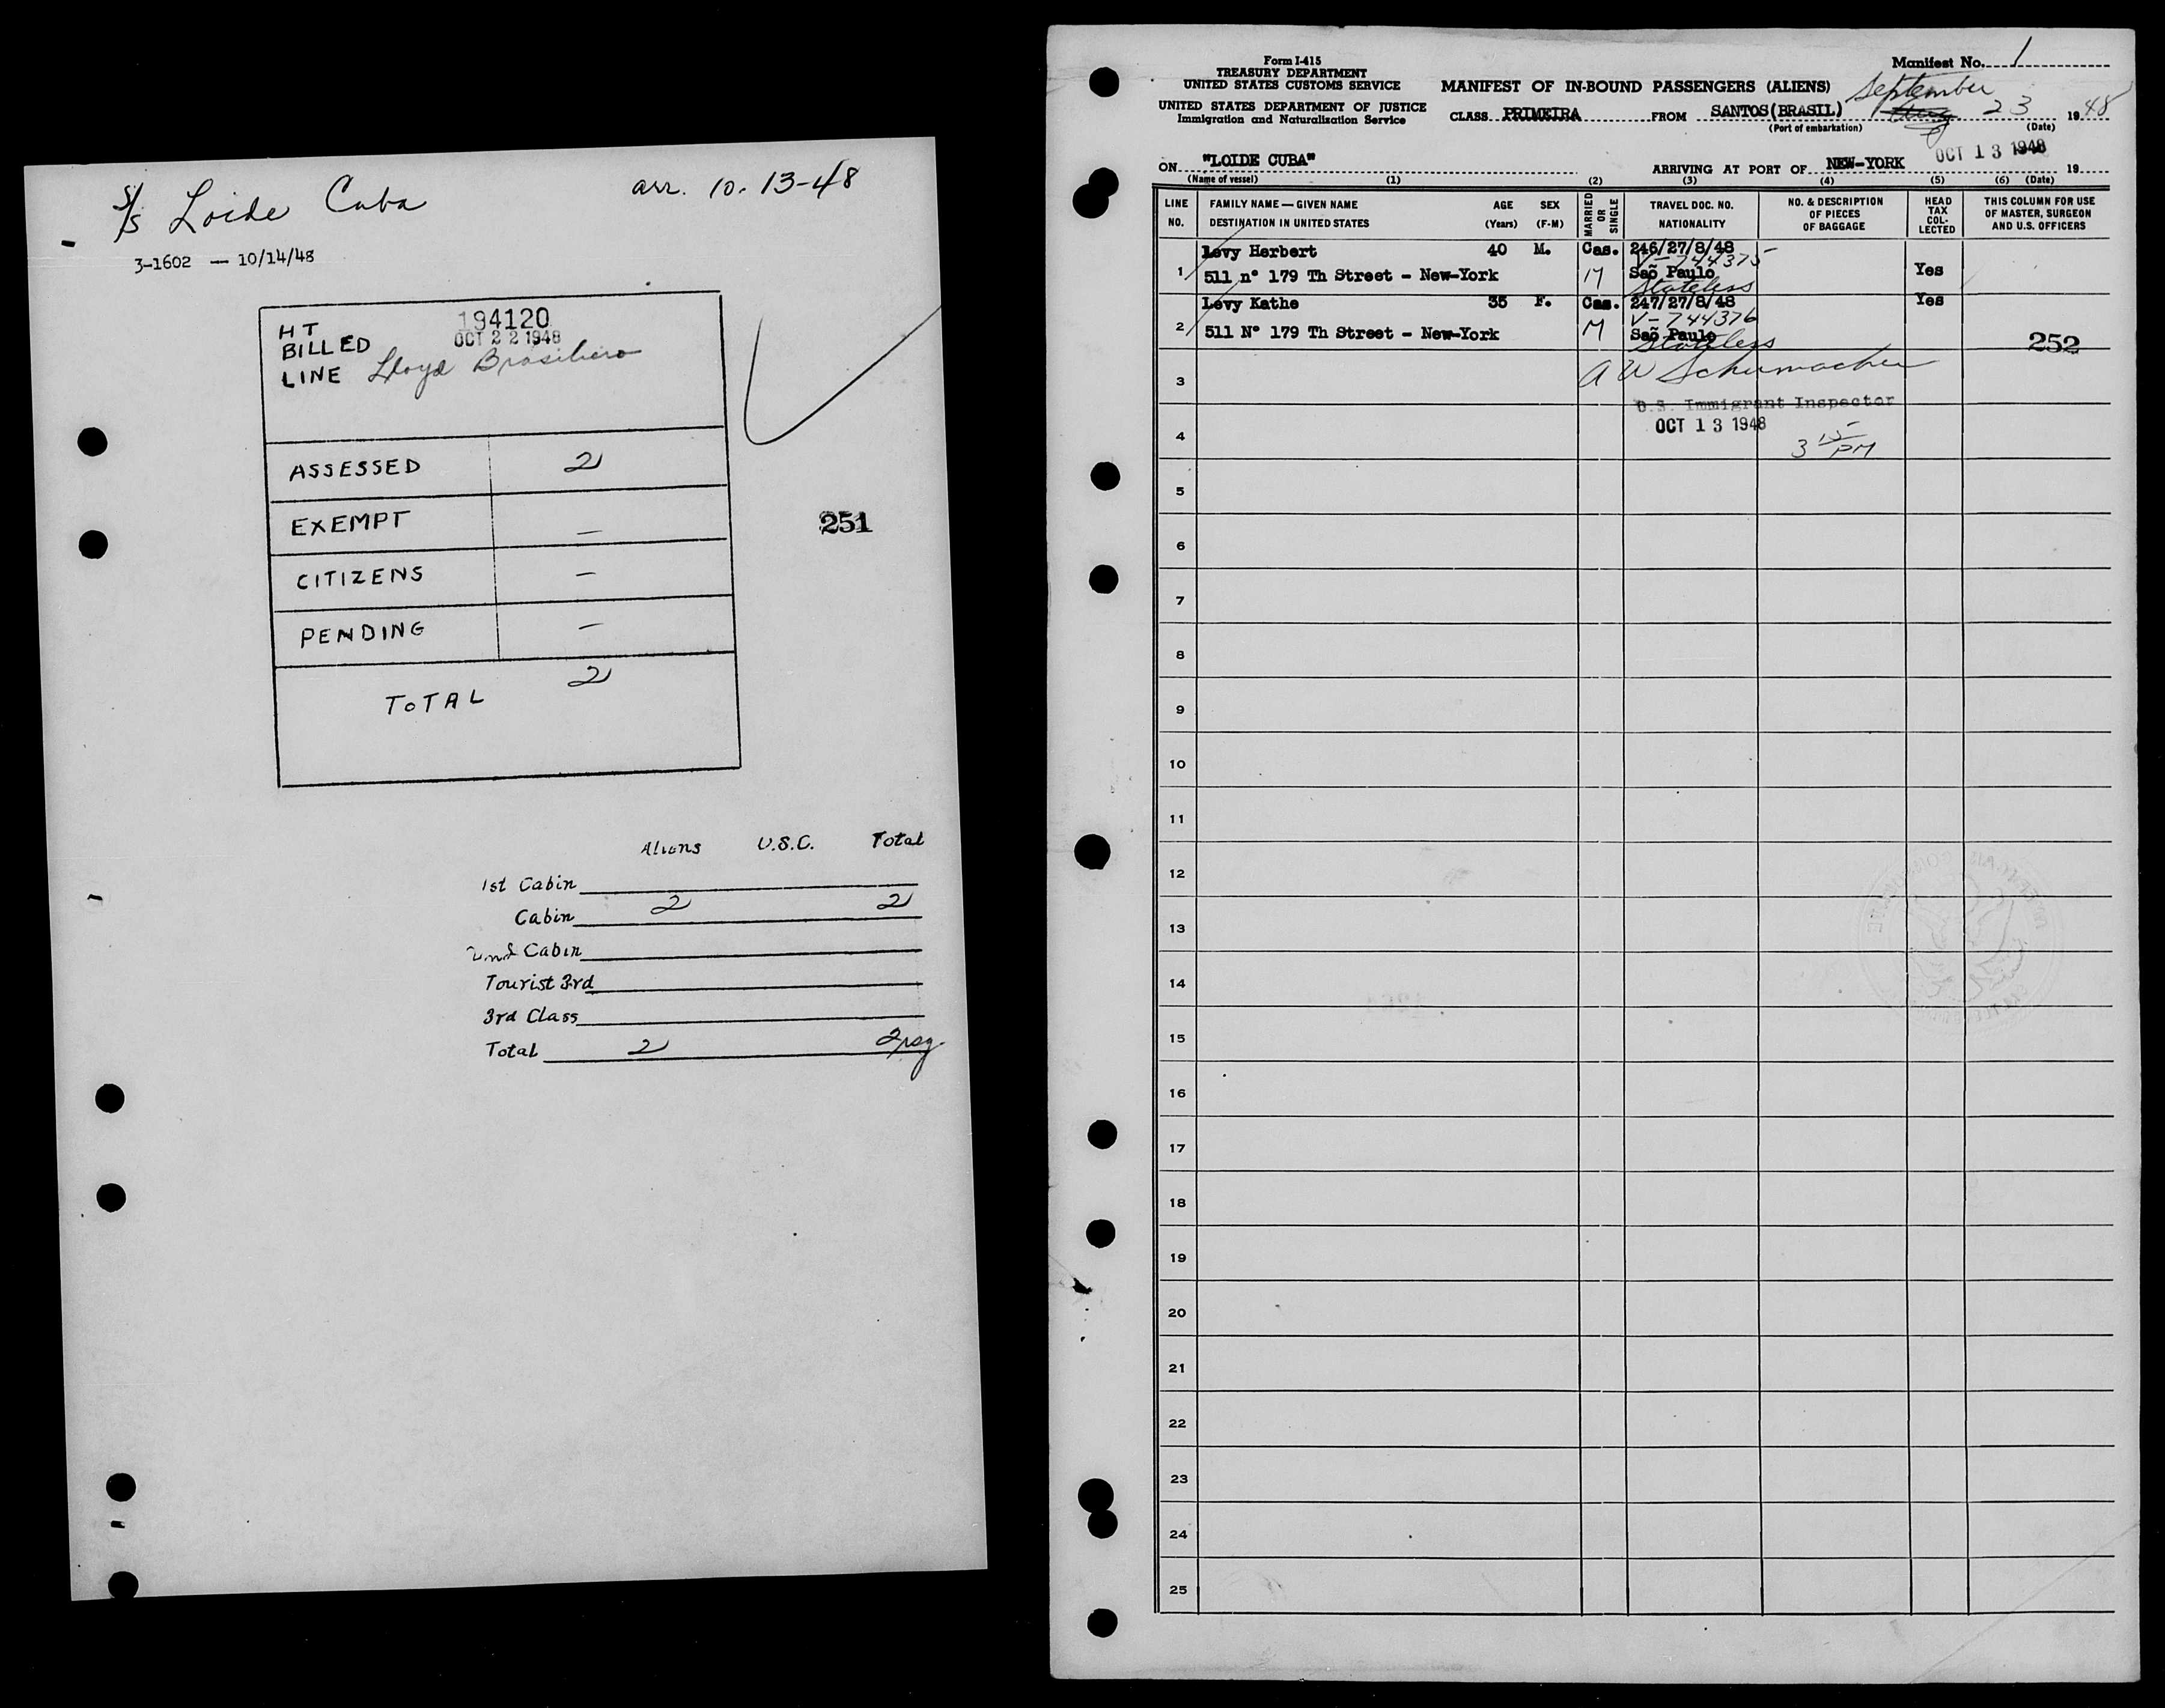 S/S Loide Cuba arr. 10-13-48
3-1602 — 10/14/48
194120
H T
BILLED OCT 22 1948
LINE Lloyd Brasiliero
ASSESSED 2
EXEMPT —
251
CITIZENS —
PENDING —
TOTAL 2
Aliens U.S.C. Total
1st Cabin
Cabin 2 2
2nd Cabin
Tourist 3rd
3rd Class
Total 2 2 psg
Form I-415
TREASURY DEPARTMENT
UNITED STATES CUSTOMS SERVICE
UNITED STATES DEPARTMENT OF JUSTICE
Immigration and Naturalization Service
Manifest No. 1
MANIFEST OF IN-BOUND PASSENGERS (ALIENS)
CLASS PRIMEIRA FROM SANTOS(BRASIL) September Aug 23 1948
(Port of embarkation) (Date)
ON "LOIDE CUBA" ARRIVING AT PORT OF NEW-YORK OCT 13 1948 19
(Name of vessel) (1) (2) (3) (4) (5) (6) (Date)
LINE NO.
FAMILY NAME — GIVEN NAME
DESTINATION IN UNITED STATES
AGE (Years)
SEX (F-M)
MARRIED OR SINGLE
TRAVEL DOC. NO.
NATIONALITY
NO. & DESCRIPTION OF PIECES OF BAGGAGE
HEAD TAX COL- LECTED
THIS COLUMN FOR USE OF MASTER, SURGEON AND U.S. OFFICERS
Levy Herbert 40 M. Cas. 246/27/8/48
V-744375
1 511 nº 179 Th Street - New-York M Saõ Paulo Yes
Stateless
Levy Kathe 35 F. Cas. 247/27/8/48 Yes
V-744376
2 511 Nº 179 Th Street - New-York M Saõ Paulo
Stateless
252
3 A W Schumacher
U.S. Immigrant Inspector
4 OCT 13 1948
3 15 PM
5
6
7
8
9
10
11
12
13
14
15
16
17
18
19
20
21
22
23
24
25